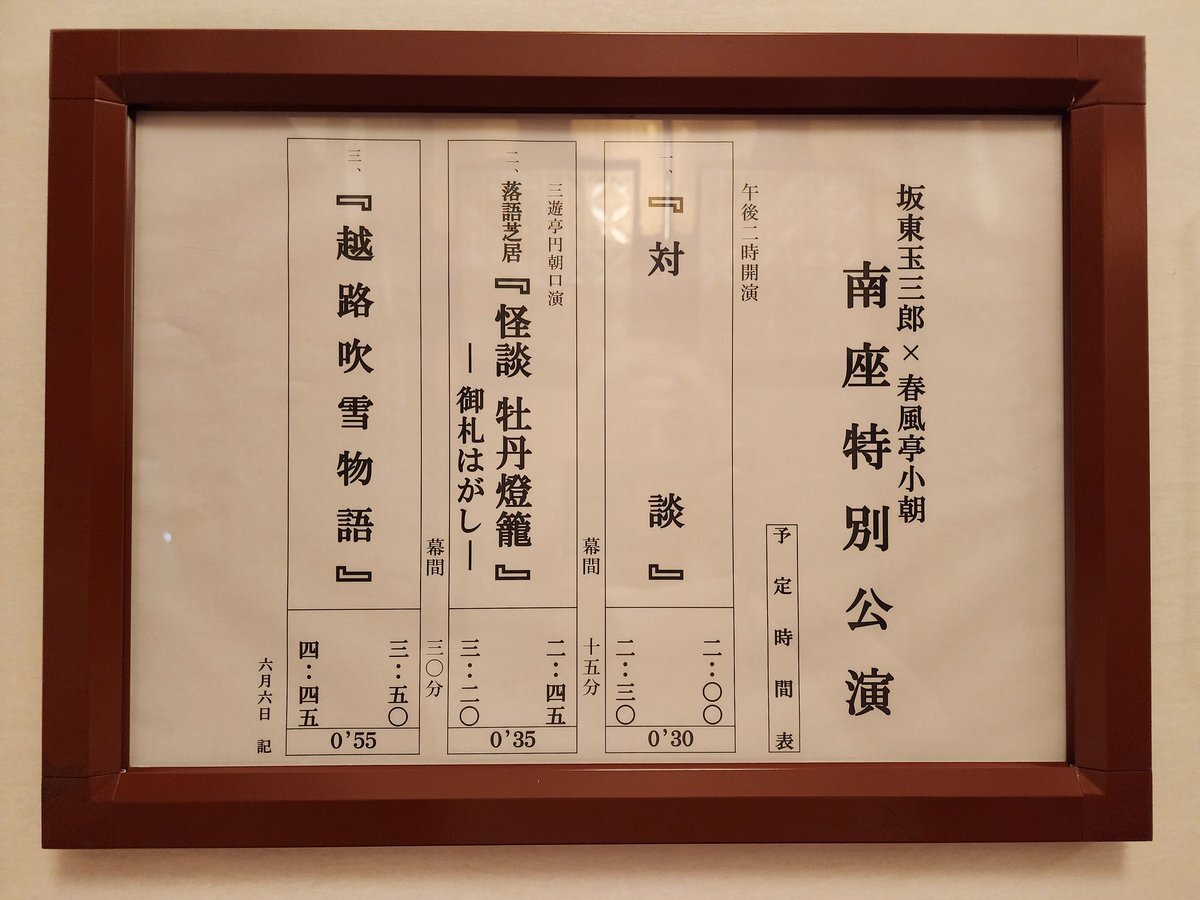 坂東玉三郎×春風亭小朝
南座特別公演
予定時間表
午後二時開演
一、『対談』
二:〇〇
二:三〇
0’30
幕間 十五分
三遊亭円朝口演
二、落語芝居『怪談 牡丹燈籠』
―御札はがし―
二:四五
三:二〇
0’35
幕間 三〇分
三、『越路吹雪物語』
三:五〇
四:四五
0’55
六月六日 記